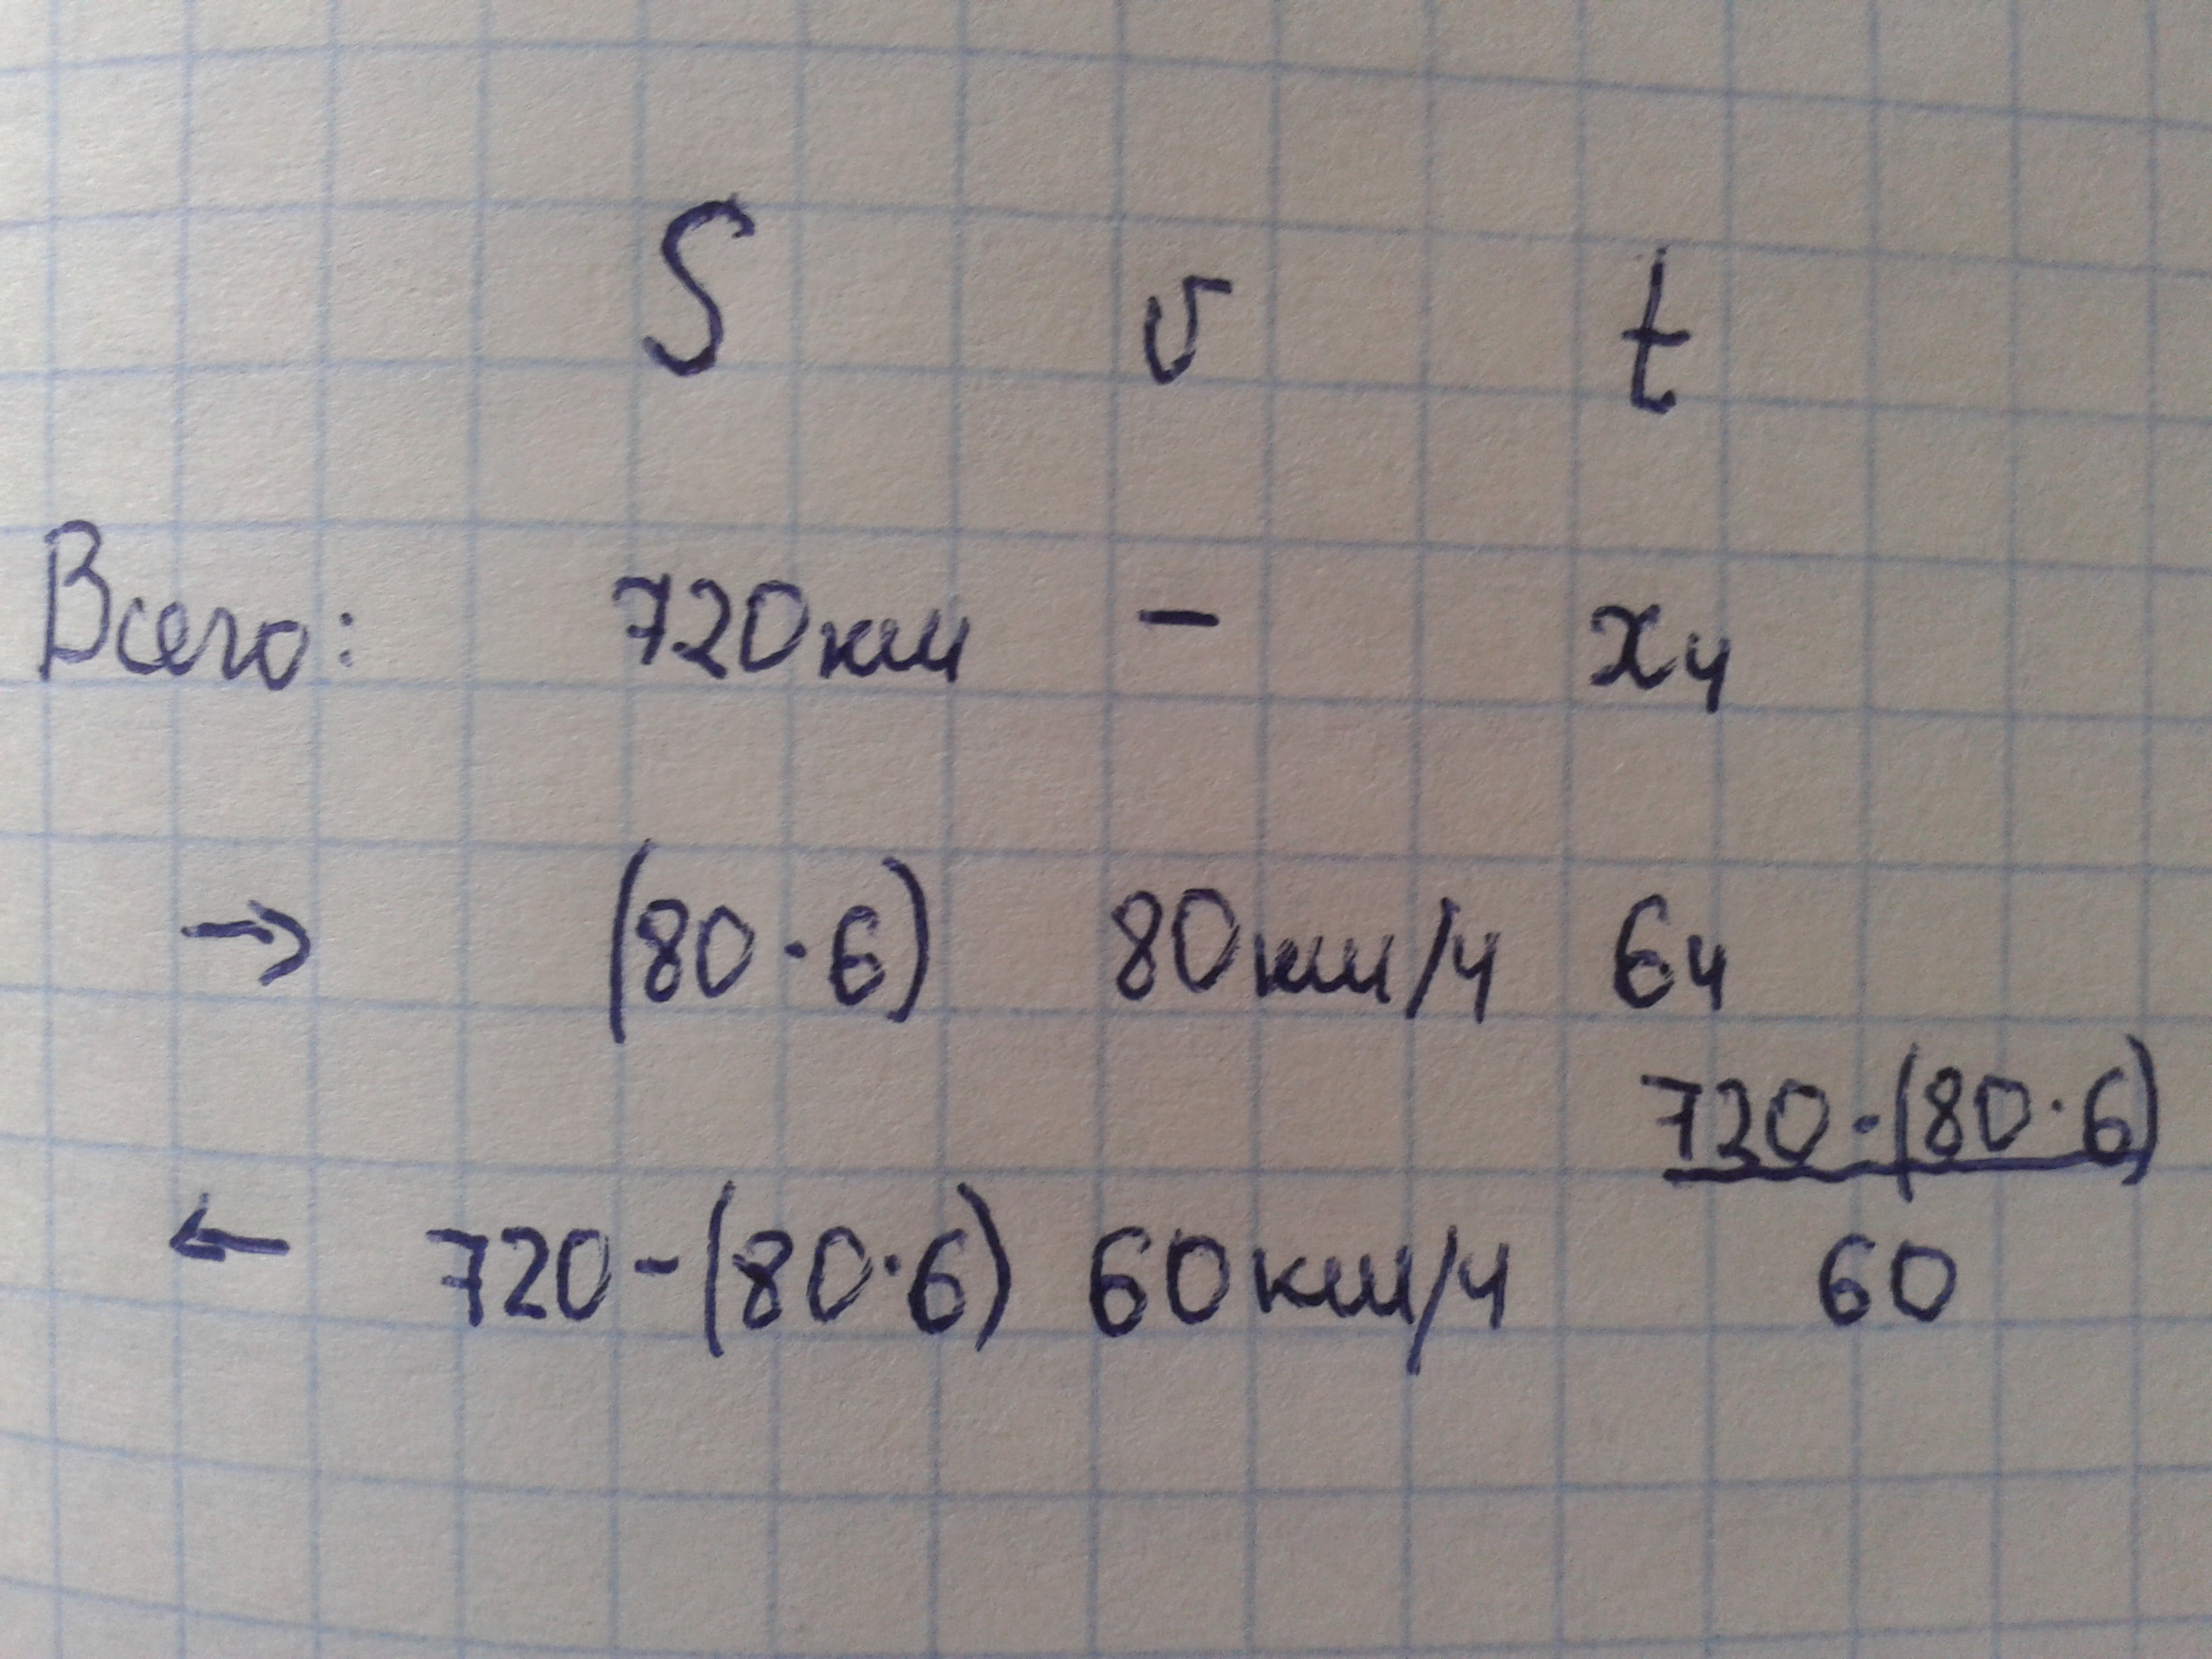 S v t
Всего: 720км - xч
→ (80·6) 80км/ч 6ч
720-(80·6)
← 720-(80·6) 60км/ч 60